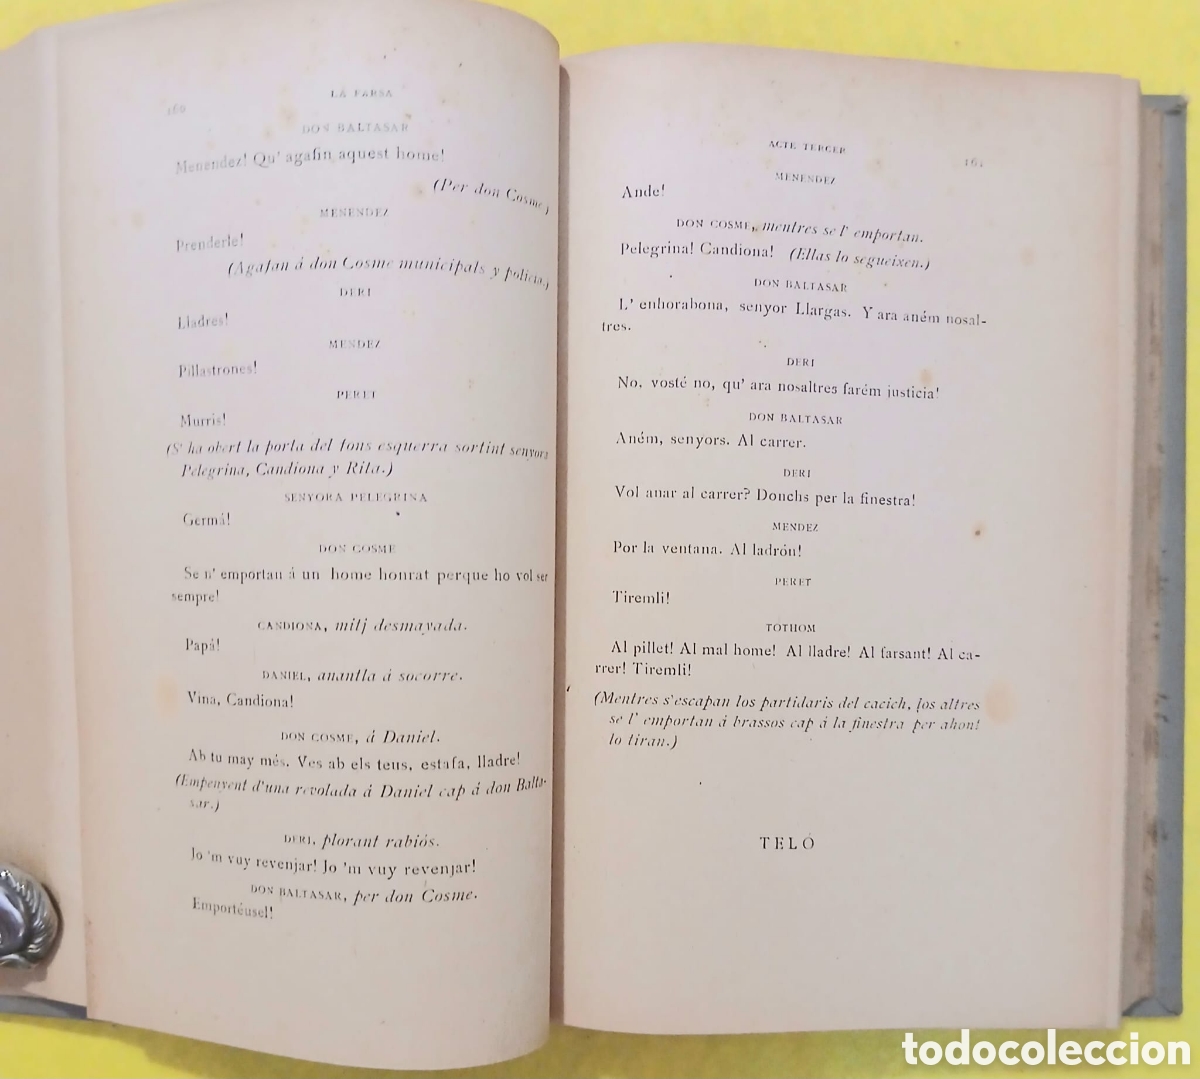 160
LA FARSA
DON BALTASAR
Menendez! Qu' agafin aquest home!
(Per don Cosme)
MENENDEZ
Prenderle!
(Agafan á don Cosme municipals y policia.)
DERI
Lladres!
MENDEZ
Pillastrones!
PERET
Murris!
(S' ha obert la porta del fons esquerra sortint senyora
Pelegrina, Candiona y Rita.)
SENYORA PELEGRINA
Germá!
DON COSME
Se n' emportan á un home honrat perque ho vol ser
sempre!
CANDIONA, mitj desmayada.
Papá!
DANIEL, anantla á socorre.
Vina, Candiona!
DON COSME, á Daniel.
Ab tu may més. Ves ab els teus, estafa, lladre!
(Empenyent d'una revolada á Daniel cap á don Balta-
sar.)
DERI, plorant rabiós.
Jo 'm vuy revenjar! Jo 'm vuy revenjar!
DON BALTASAR, per don Cosme.
Emportéusel!
ACTE TERCER
161
MENENDEZ
Ande!
DON COSME, mentres se l' emportan.
Pelegrina! Candiona! (Ellas lo segueixen.)
DON BALTASAR
L' enhorabona, senyor Llargas. Y ara aném nosal-
tres.
DERI
No, vosté no, qu' ara nosaltres farém justicia!
DON BALTASAR
Aném, senyors. Al carrer.
DERI
Vol anar al carrer? Donchs per la finestra!
MENDEZ
Por la ventana. Al ladrón!
PERET
Tiremli!
TOTHOM
Al pillet! Al mal home! Al lladre! Al farsant! Al ca-
rrer! Tiremli!
(Mentres s'escapan los partidaris del cacich, los altres
se l' emportan á brassos cap á la finestra per ahont
lo tiran.)
TELÓ
todocoleccion